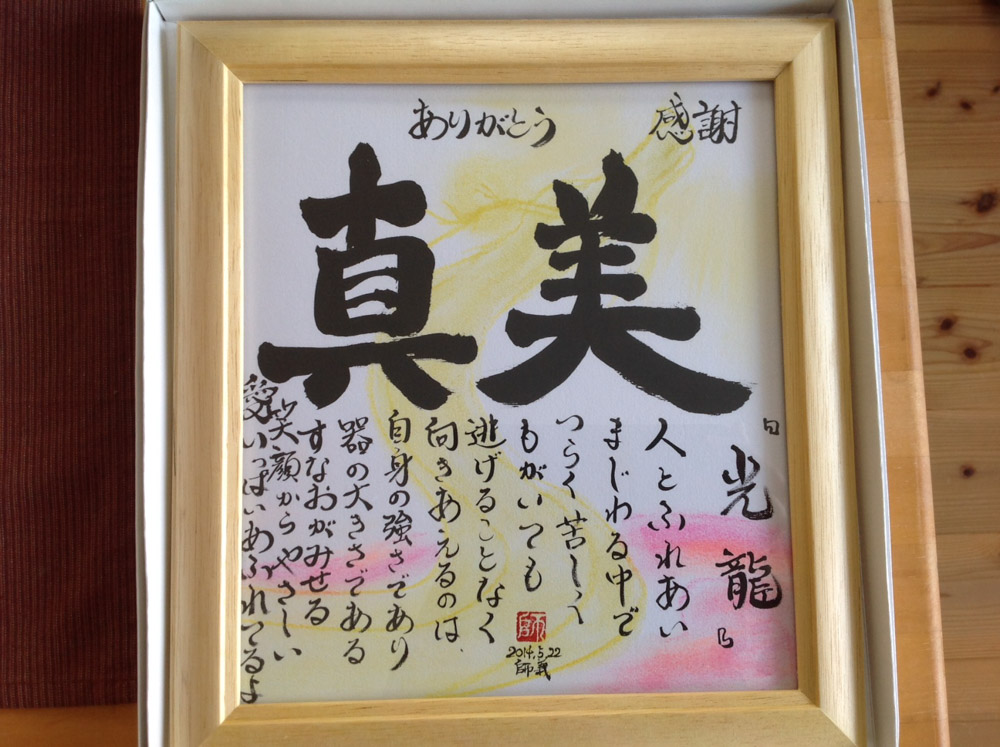 感謝
ありがとう
真美
「光龍」
人とふれあい
まじわる中で
つらく苦しく
もがいても
逃げることなく
向きあえるのは、
自身の強さであり
器の大きさである
すなおがみせる
笑顔からやさしい
愛いっぱいあふれてるよ
師
2014.5.22